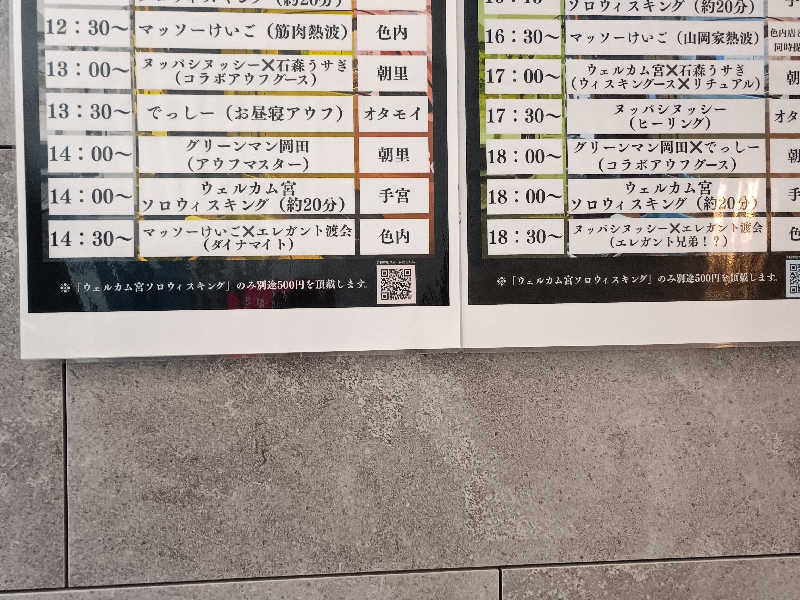 (約20分)
12：30〜 マッソーけいご（筋肉熱波） 色内
13：00〜 ヌッパシヌッシー×石森うさぎ
（コラボアウフグース） 朝里
13：30〜 でっしー（お昼寝アウフ） オタモイ
14：00〜 グリーンマン岡田
（アウフマスター） 朝里
14：00〜 ウェルカム宮
ソロウィスキング（約20分） 手宮
14：30〜 マッソーけいご×エレガント渡会
（ダイナマイト） 色内
※「ウェルカム宮ソロウィスキング」のみ別途500円を頂戴します。
ソロウィスキング（約20分）
16：30〜 マッソーけいご（山岡家熱波） 色内
同時
17：00〜 ウェルカム宮×石森うさぎ
（ウィスキングース×リチュアル） 朝
17：30〜 ヌッパシヌッシー
（ヒーリング） オタ
18：00〜 グリーンマン岡田×でっしー
（コラボアウフグース） 朝
18：00〜 ウェルカム宮
ソロウィスキング（約20分） 手
18：30〜 ヌッパシヌッシー×エレガント渡会
（エレガント兄弟！？） 色
※「ウェルカム宮ソロウィスキング」のみ別途500円を頂戴します。